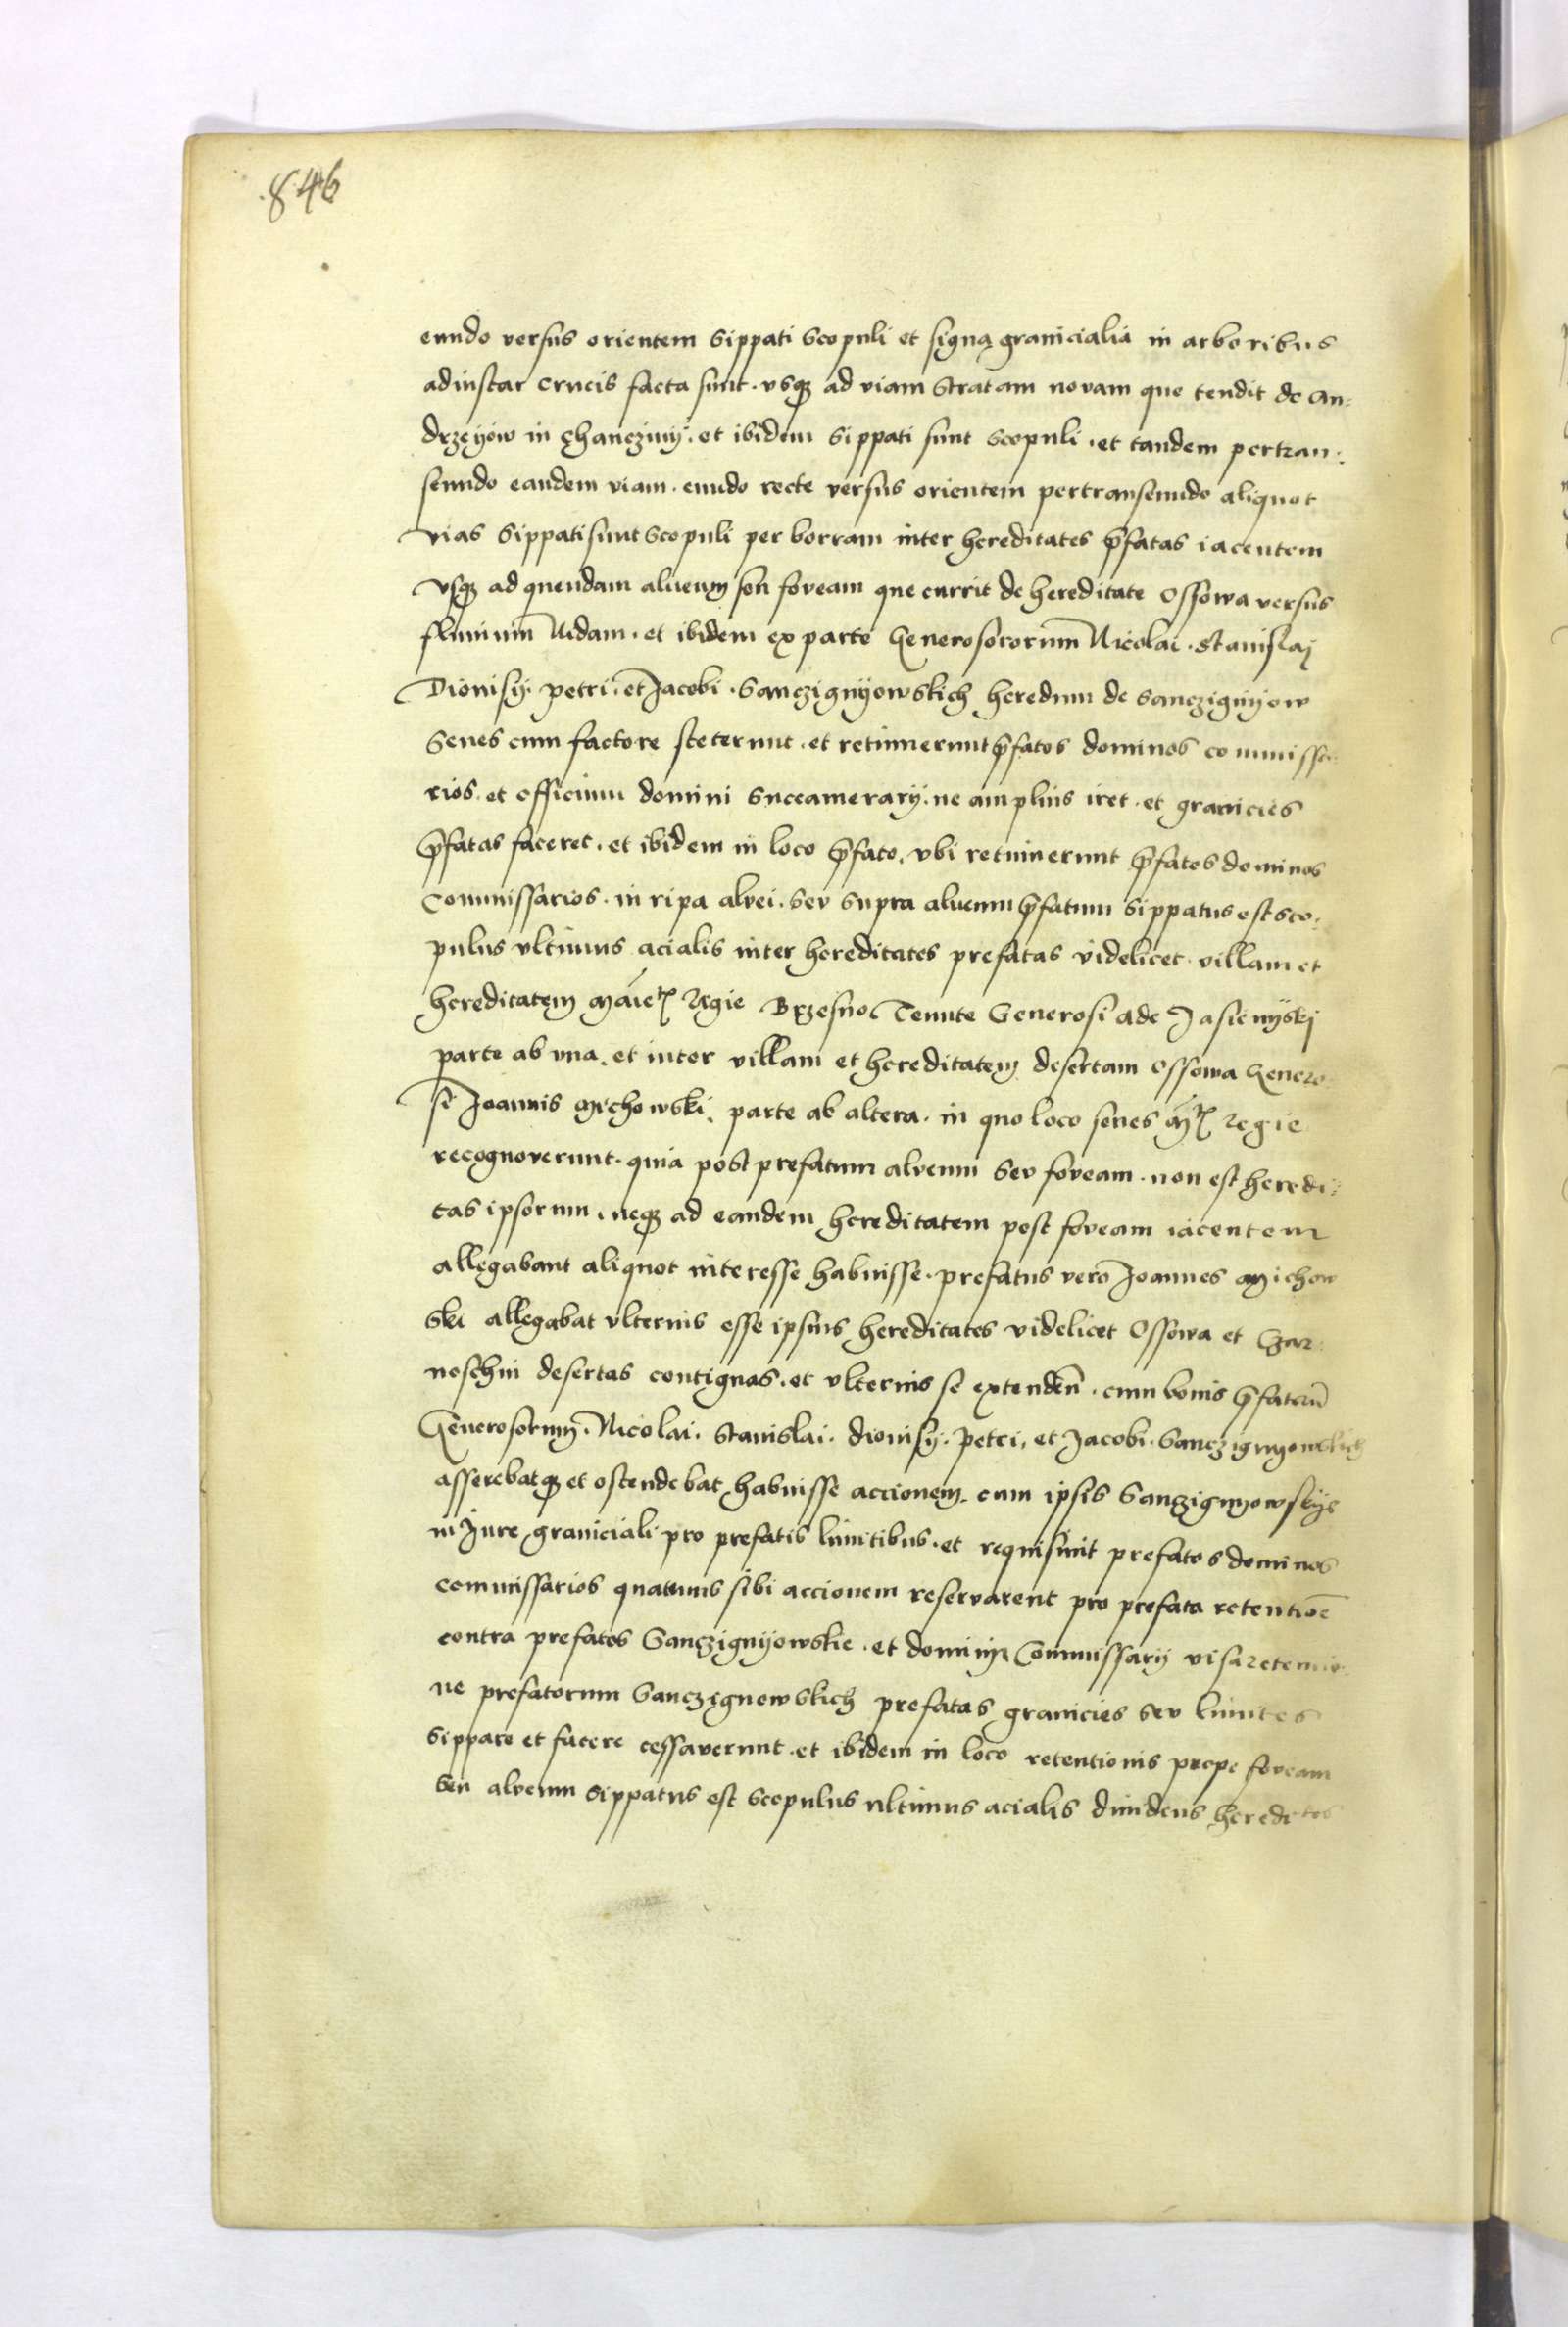 846
eundo versus orientem sippati scopuli et signa granicialia in arboribus
adinstar crucis facta sunt. vsq3 ad viam stratam novam que tendit de An=
drzeyow in Chanczyny. et ibidem sippati sunt scopuli. et tandem pertran=
seundo eandem viam. eundo recte versus orientem pertranseundo aliquot
vias sippati sunt scopuli per borram inter hereditates p̄fatas iacentem
vsq3 ad quendam alveum seu foveam que currit de hereditate Ossowa versus
fluuium Nidam. et ibidem ex parte Generosorum Nicolai. Stanislaj
Dionisij. petri. et Jacobi. Sanczignyowskich heredum de Sanczignyow
senes cum factore steterunt. et retinuerunt p̄fatos dominos commissa
rios. et officium domini succamerarij. ne amplius iret. et granicies
p̄fatas faceret. et ibidem in loco p̄fato. vbi retinuerunt p̄fatos dominos
Commissarios. in ripa alvei. sev supra alveum p̄fatum sippatus est sco=
pulus vltimus acialis inter hereditates prefatas videlicet villam et
hereditatem Maiet̄ Regie Brzesno Tenute Generosi Ade Jasienyski
parte ab vna. et inter villam et hereditatem desertam Ossowa Genero
si Joannis Michowski. parte ab altera. in quo loco senes M̄t̄ Regie
recognoverunt. quia post prefatum alveum sev foveam. non est heredi=
tas ipsorum. neq3 ad eandem hereditatem post foveam iacentem
allegabant aliquot interesse habuisse. prefatus vero Joannes Michow
ski allegabat vlterius esse ipsius hereditates videlicet Ossowa et Czar=
noschin desertas contiguas. et vlterius se extendeñ. cum bonis p̄fatorū
Generosorum. Nicolai. Stanislai. dionisij. petri. et Jacobi. Sanczignyowskich
asserebatq3 et ostendebat habuisse accionem. cum ipsis Sanczignyowskys
in Jure graniciali pro prefatis limitibus. et requisiuit prefatos dominos
commissarios quatinus sibi accionem reservarent pro prefata retentioē
contra prefatos Sanczignyowskie. et domini Commissarij visa retentio
ne prefatorum Sanczignowskich prefatas granicies sev limites
sippare et facere cessaverunt. et ibidem in loco retentionis prope foveam
seu alveum sippatus est scopulus vltimus acialis diuidens heredites